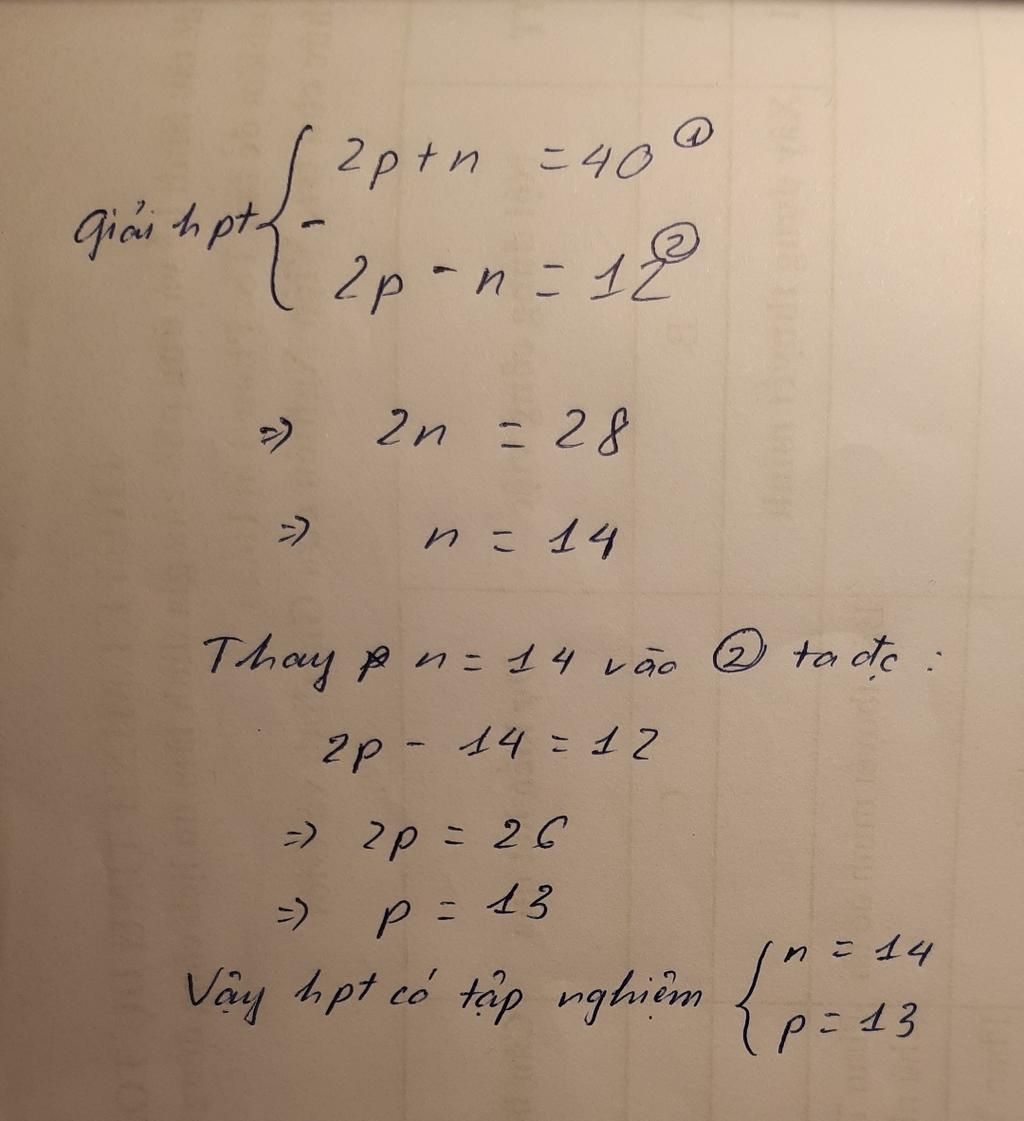 2p + n = 40 ①
Giải hpt { -
2p - n = 12 ②
=> 2n = 28
=> n = 14
Thay n = 14 vào ② ta đc :
2p - 14 = 12
=> 2p = 26
=> p = 13
Vậy hpt có tập nghiệm { n = 14
p = 13